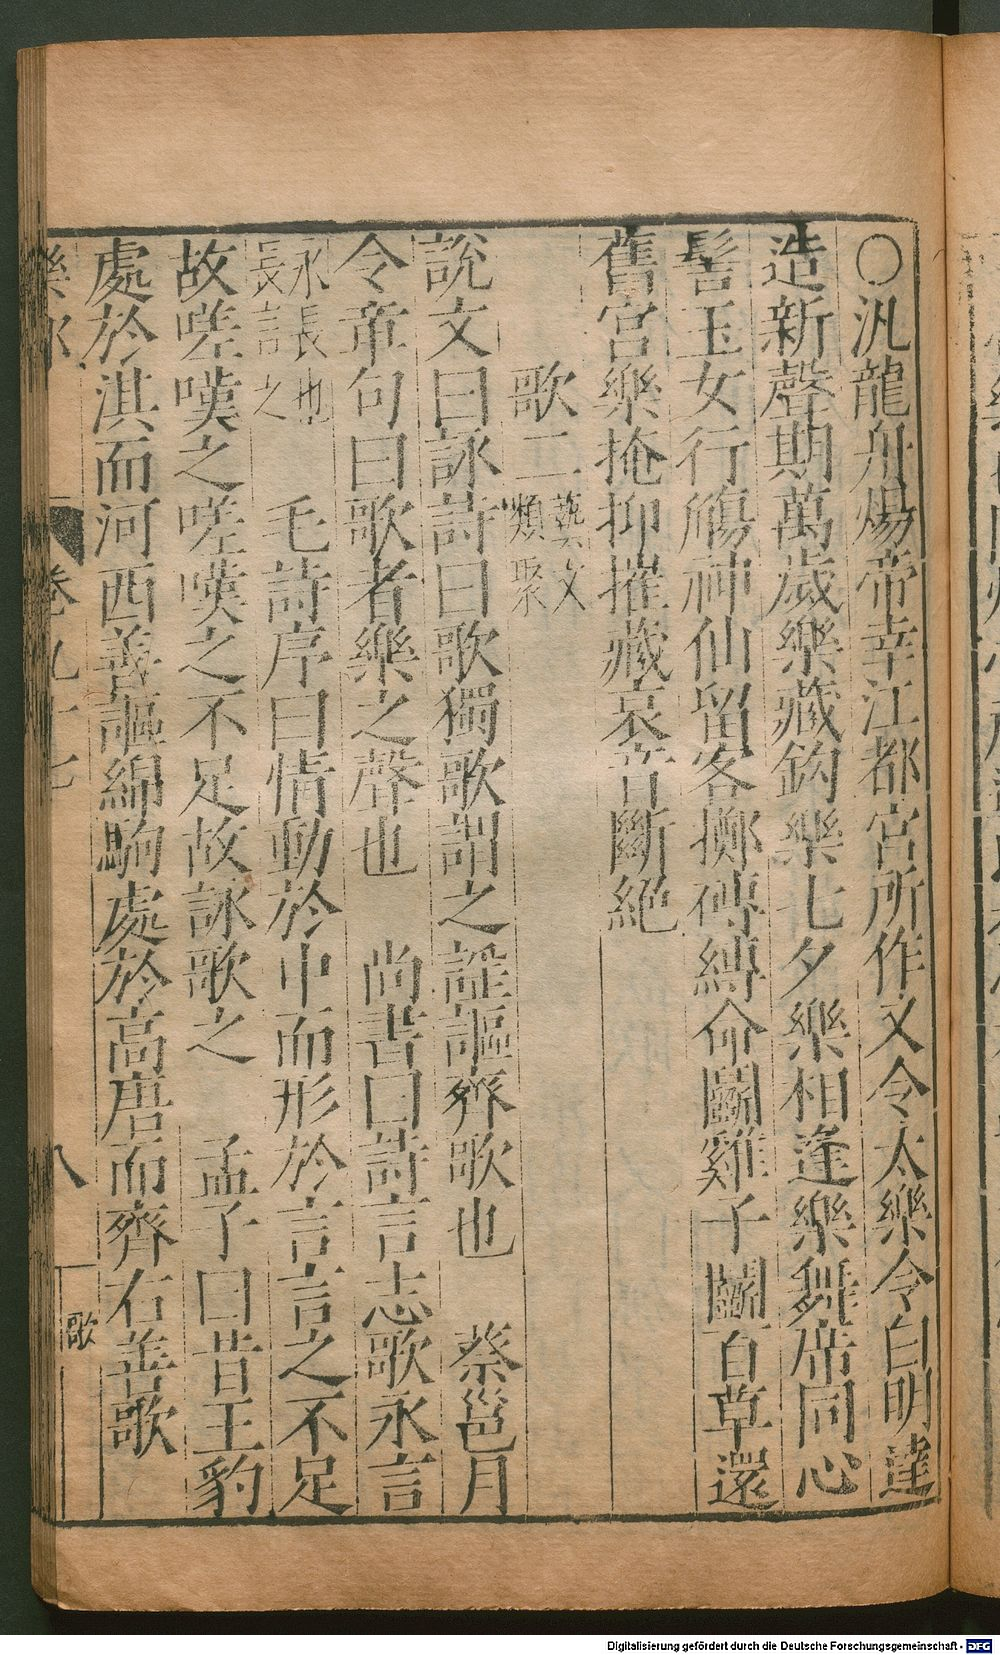 〇汎龍舟煬帝幸江都宮所作又令太樂令白明達
造新聲期萬歲樂藏鈎樂七夕樂相逢樂舞席同心
髻玉女行觴神仙留客擲磚續命鬬雞子鬬百草還
舊宮樂掩抑摧藏哀音斷絕
歌二藝文類聚
說文曰詠詩曰歌獨歌謂之謡謳齊歌也　蔡邕月
令章句曰歌者樂之聲也　尚書曰詩言志歌永言
永長也長言之　毛詩序曰情動於中而形於言言之不足
故嗟嘆之嗟嘆之不足故詠歌之　孟子曰昔王豹
處於淇而河西善謳綿駒處於高唐而齊右善歌
樂部　卷九十七　八　歌
Digitalisierung gefördert durch die Deutsche Forschungsgemeinschaft - DFG